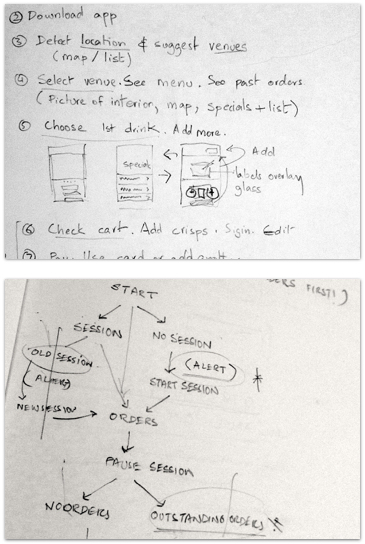 ② Download app
③ Detect location & suggest venues
(map / list)
④ Select venue. See menu. See past orders
(Picture of interior, map, specials + list)
⑤ Choose 1st drink. Add more.
Specials
Add
labels overlay
glass
⑥ Check cart. Add crisps. Sign. Edit
⑦ Pay. Use card or add
FIRST!)
START
SESSION
NO SESSION
OLD SESSION
(ALERT)
(ALERT)
START SESSION
*
NEW SESSION
ORDERS
PAUSE SESSION
NO ORDERS
OUTSTANDING ORDERS